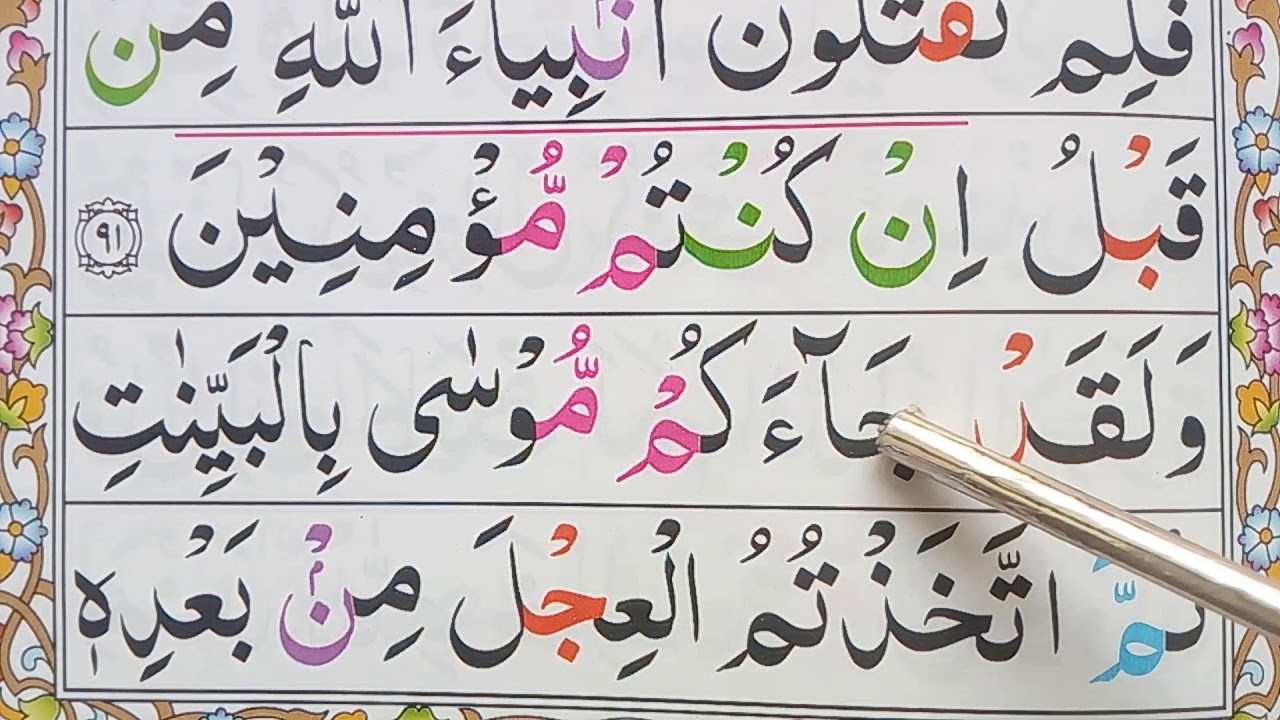 فَلِمَ تَقْتُلُوْنَ اَنْۢبِيَآءَ اللّٰهِ مِنْ
قَبْلُ اِنْ كُنْتُمْ مُّؤْمِنِيْنَ ۹۱
وَلَقَدْ جَآءَكُمْ مُّوْسٰى بِالْبَيِّنٰتِ
ثُمَّ اتَّخَذْتُمُ الْعِجْلَ مِنْۢ بَعْدِهٖ